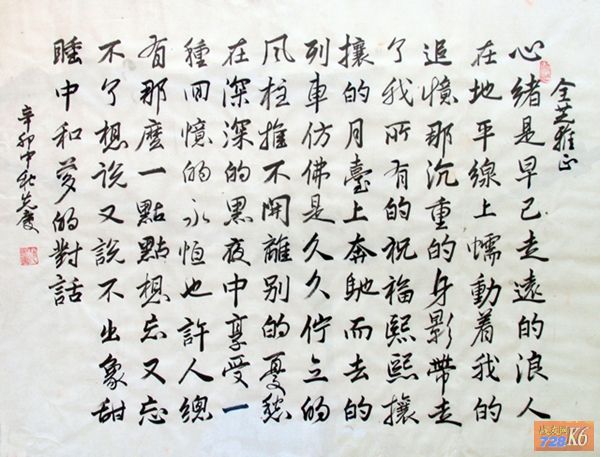 全芝雅正
心緒是早已走遠的浪人
在地平線上蠕動着我的
追憶那沉重的身影帶走
了我所有的祝福熙熙攘
攘的月臺上奔馳而去的
列車仿佛是久久佇立的
風柱推不開離别的憂愁
在深深的黑夜中享受一
種回憶的永恒也許人總
有那麼一點點想忘又忘
不了想説又説不出象甜
睡中和夢的對話
辛卯中秋
战友网
728 K6